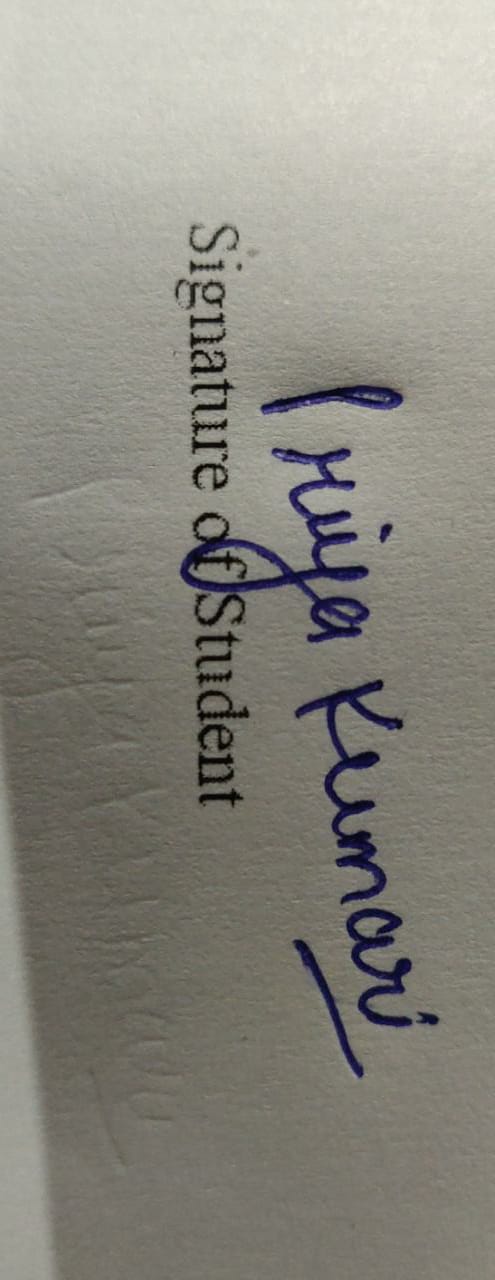 Priya Kumari
Signature of Student